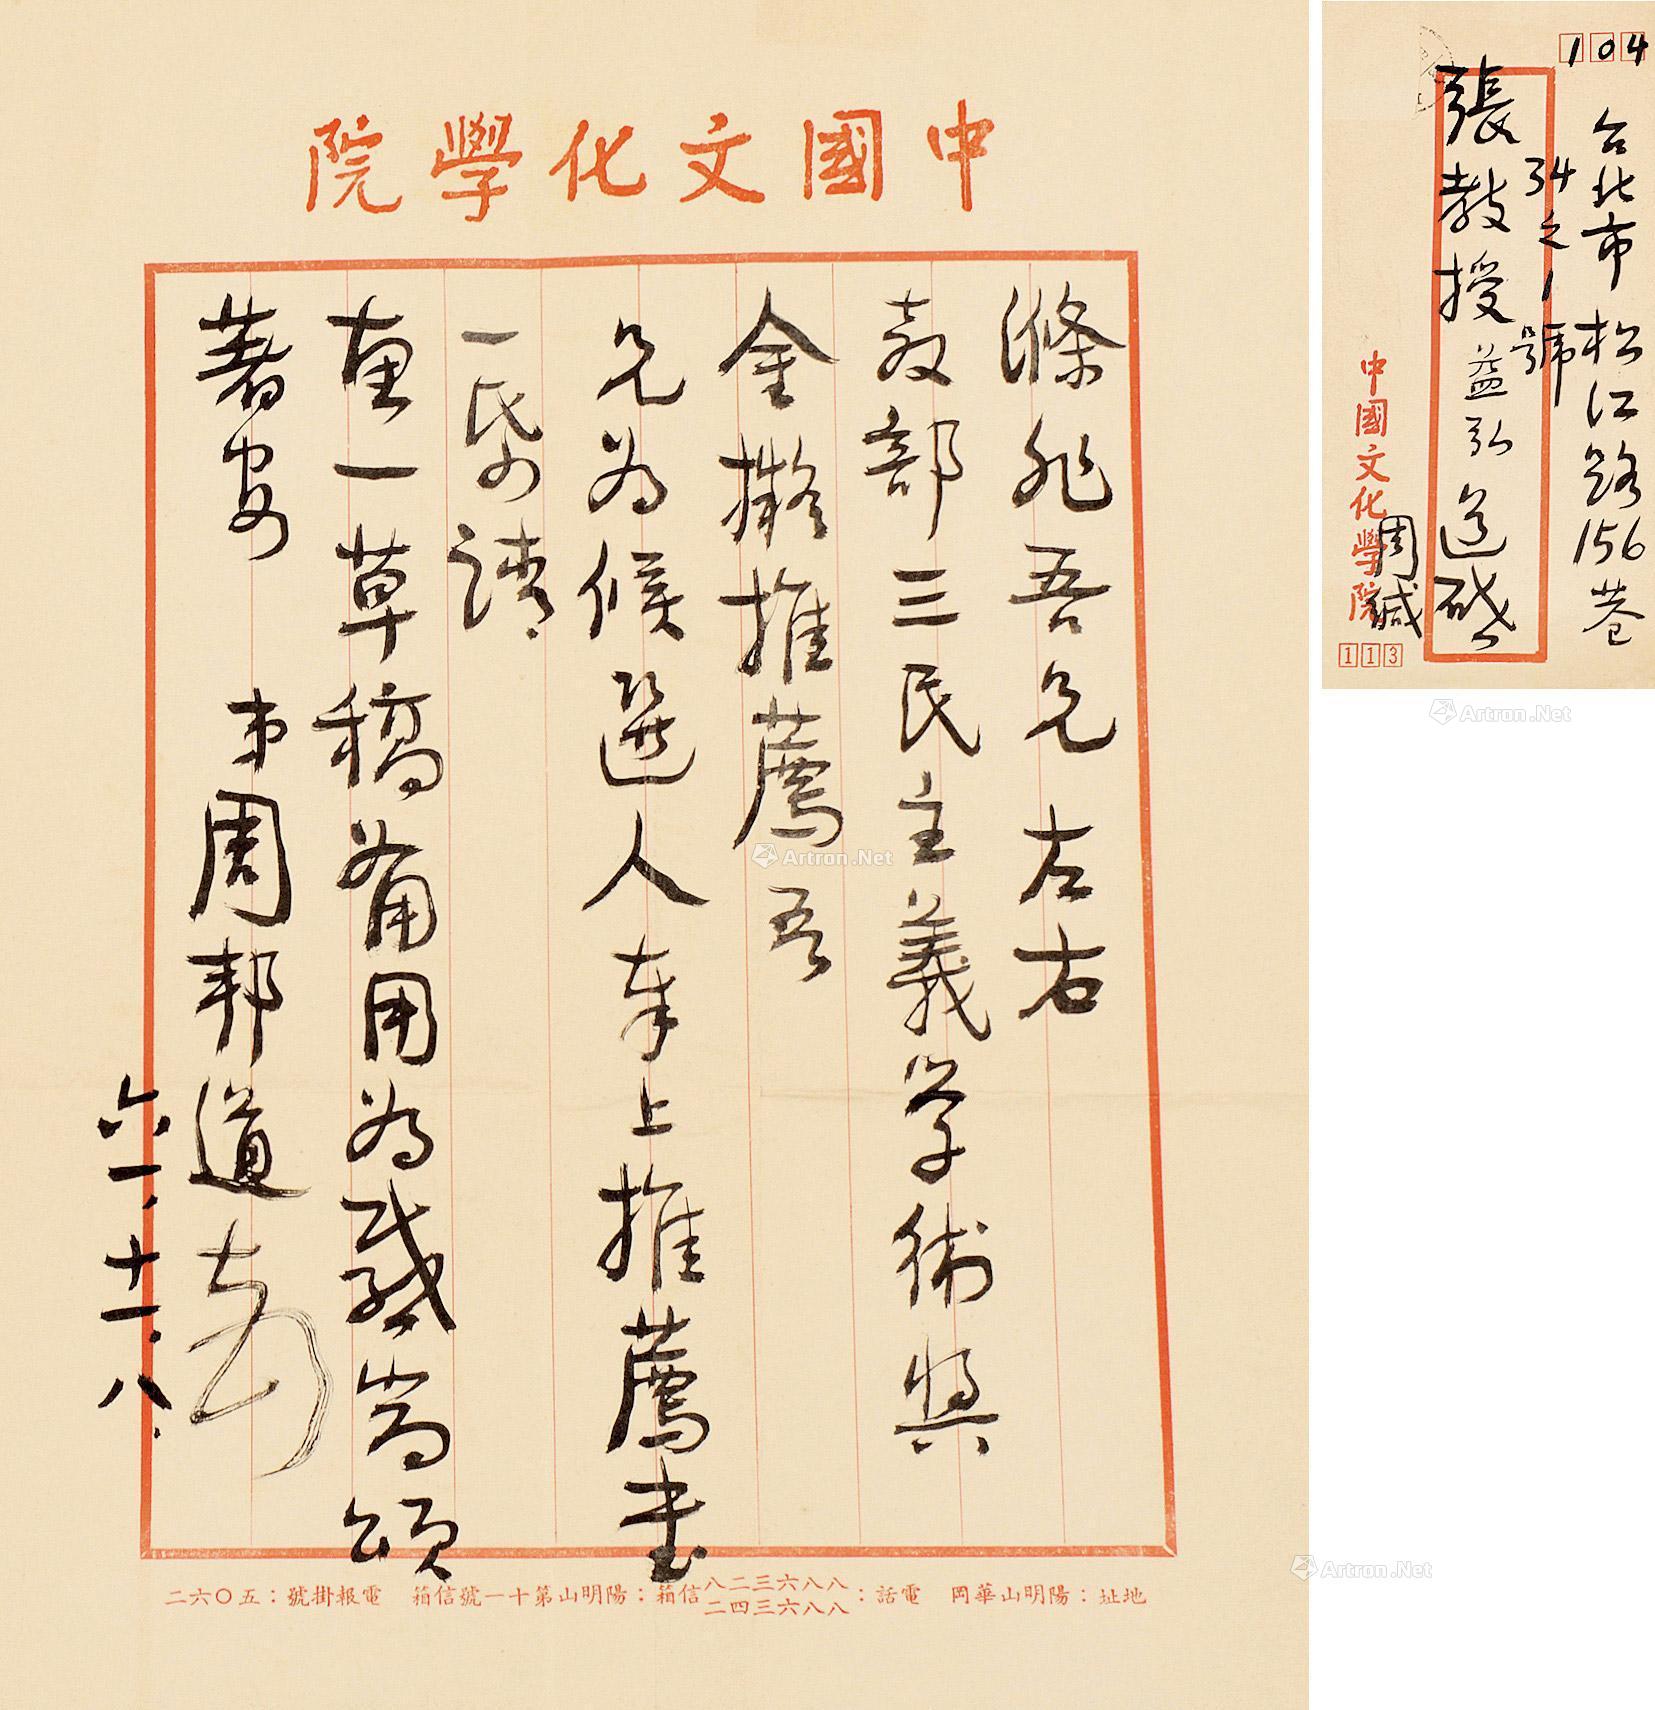 中國文化學院
滌非吾兄左右
教部三民主義学術獎
金擬推薦吾
兄為候選人奉上推薦書
一帋,請
重一草稿備用為感耑頌
著安 弟周邦道
六一、十一、八.
地址:陽明山華岡 電話:八八六三二八 八八六三四二 信箱:陽明山第十一號信箱 電報掛號:五〇六二
104
台北市松江路156巷
34之1號
張教授益弘道啟
中國文化學院
周緘
113
Artron.Net
Artron.Net
Artron.Net